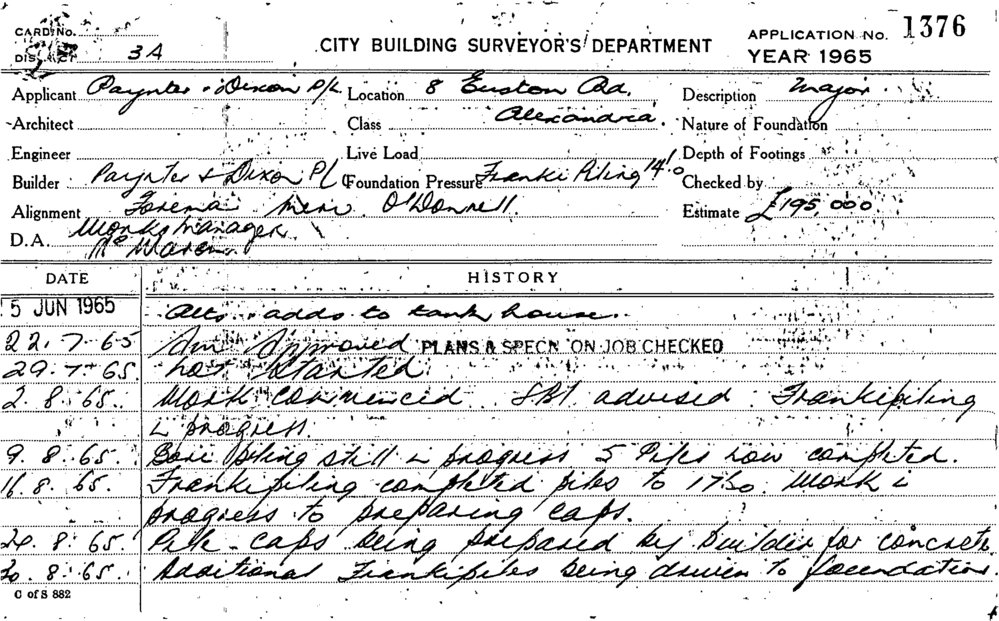 CARD No.
DISTRICT 3A
CITY BUILDING SURVEYOR'S DEPARTMENT
APPLICATION No. 1376
YEAR 1965
Applicant Paynter & Dixon P/L Location 8 Euston Rd. Description Major
Architect Class Alexandria. Nature of Foundation
Engineer Live Load Depth of Footings
Builder Paynter & Dixon P/L Foundation Pressure Franki Piling 14'.0 Checked by
Alignment Foreman O'Donnell. Estimate £195,000
D.A. Works Manager
DATE HISTORY
5 JUN 1965 Alts. adds to tank house.
22.7.65 Approved PLANS & SPECN ON JOB CHECKED
29.7.65. not started
2.8.65. Work commenced. advised. Frankipiling
in progress.
9.8.65. piling still in progress 5 Piles now completed.
16.8.65. Frankipiling completed piles to Work in
progress to preparing caps.
8.65. Pile caps being prepared by builder for concrete.
8.65. Additional Frankipiles being driven to foundation.
C of S 882